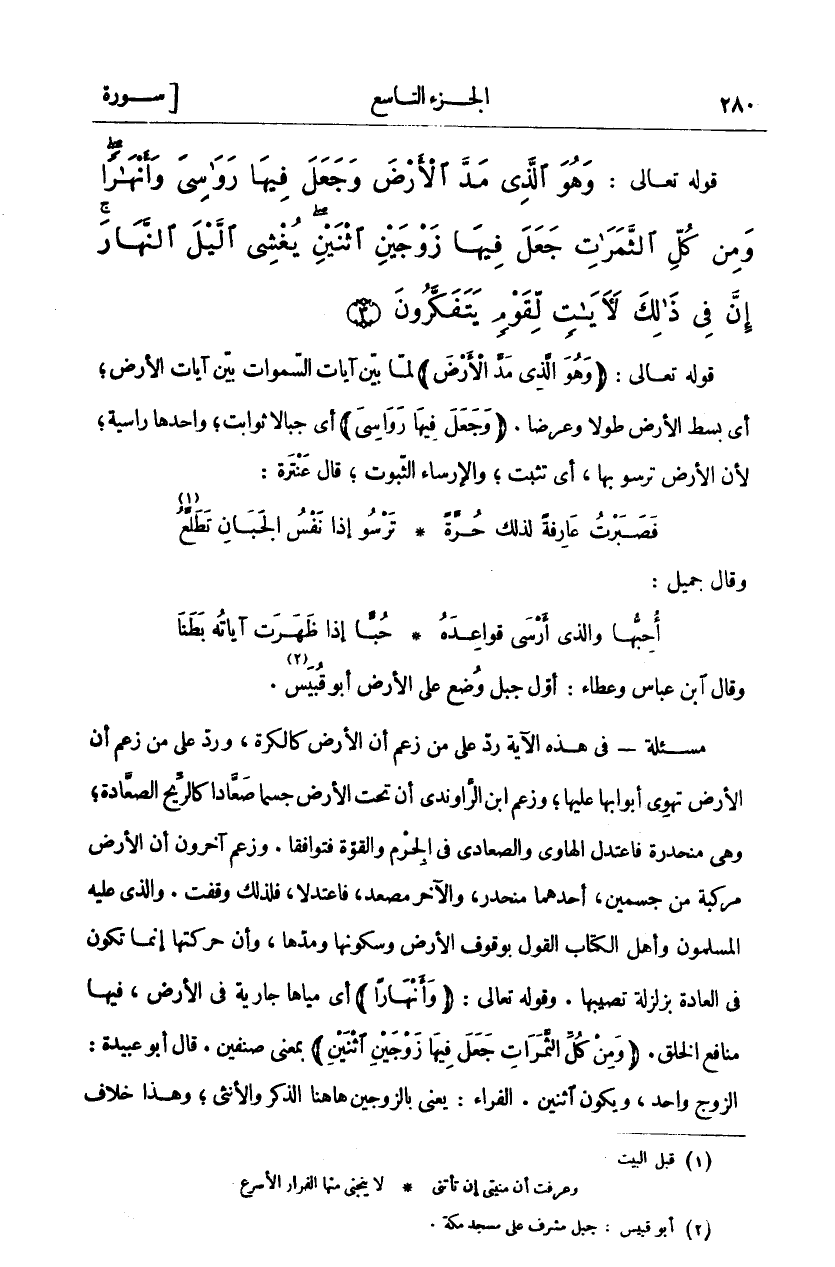 ٢٨٠ الجـزء التـاسع [ ســورة
قوله تعـالى : وَهُوَ ٱلَّذِى مَدَّ ٱلْأَرْضَ وَجَعَلَ فِيهَا رَوَٰسِىَ وَأَنْهَٰرًاۖ
وَمِن كُلِّ ٱلثَّمَرَٰتِ جَعَلَ فِيهَا زَوْجَيْنِ ٱثْنَيْنِۖ يُغْشِى ٱلَّيْلَ ٱلنَّهَارَۚ
إِنَّ فِى ذَٰلِكَ لَأٓيَٰتٍ لِّقَوْمٍ يَتَفَكَّرُونَ ﴿٣﴾
قوله تعـالى : ﴿ وَهُوَ الَّذِى مَدَّ الْأَرْضَ ﴾ لمّا بيّن آيات السّموات بيّن آيات الأرض ؛
أى بسط الأرض طولا وعرضا . ﴿ وَجَعَلَ فِيهَا رَوَاسِىَ ﴾ أى جبالا ثوابت ؛ واحدها راسية ؛
لأن الأرض ترسو بها ، أى تثبت ؛ والإرساء الثّبوت ؛ قال عَنْتَرة :
فَصَبَرْتُ عَارِفةً لذلك حُرّةً * تَرْسُو إذا نَفْسُ الجَبَـانِ تَطَلَّعُ (١)
وقال جميل :
أُحِبُّهـا والذى أَرْسَى قواعِـدَهُ * حُبًّـا إذا ظَهَـرَت آياتُه بَطَنَا
وقال ٱبن عباس وعطاء : أوّل جبل وُضع على الأرض أبو قُبَيْس (٢) .
مســئلة — فى هـذه الآية ردّ على من زعم أن الأرض كالكرة ، وردّ على من زعم أن
الأرض تهوِى أبوابها عليها ؛ وزعم ابن الرَّاوندى أن تحت الأرض جسما صَعَّادا كالرِّيح الصعَّادة ؛
وهى منحدرة فاعتدل الهاوى والصعادى فى الِجرْم والقوّة فتوافقا . وزعم آخرون أن الأرض
مركبة من جسمين ، أحدهما منحدر ، والآخر مصعد ، فاعتدلا ، فلذلك وقفت . والذى عليه
المسلمون وأهل الكتاب القول بوقوف الأرض وسكونها ومدّها ، وأن حركتها إنمـا تكون
فى العادة بزلزلة تصيبها . وقوله تعالى : ﴿ وَأَنْهَارًا ﴾ أى مياها جارية فى الأرض ، فيهـا
منافع الخلق . ﴿ وَمِنْ كُلِّ الثَّمَرَاتِ جَعَلَ فِيهَا زَوْجَيْنِ ٱثْنَيْنِ ﴾ بمعنى صنفين . قال أبو عبيدة :
الزوج واحد ، ويكون ٱثنين . الفراء : يعنى بالزوجين هاهنا الذكر والأنثى ؛ وهـذا خلاف
(١) قبل البيت
وعرفت أن منيتى إن تأتنى * لا ينجنى منها الفرار الأسرع
(٢) أبو قبيس : جبل مشرف على مسجد مكة .